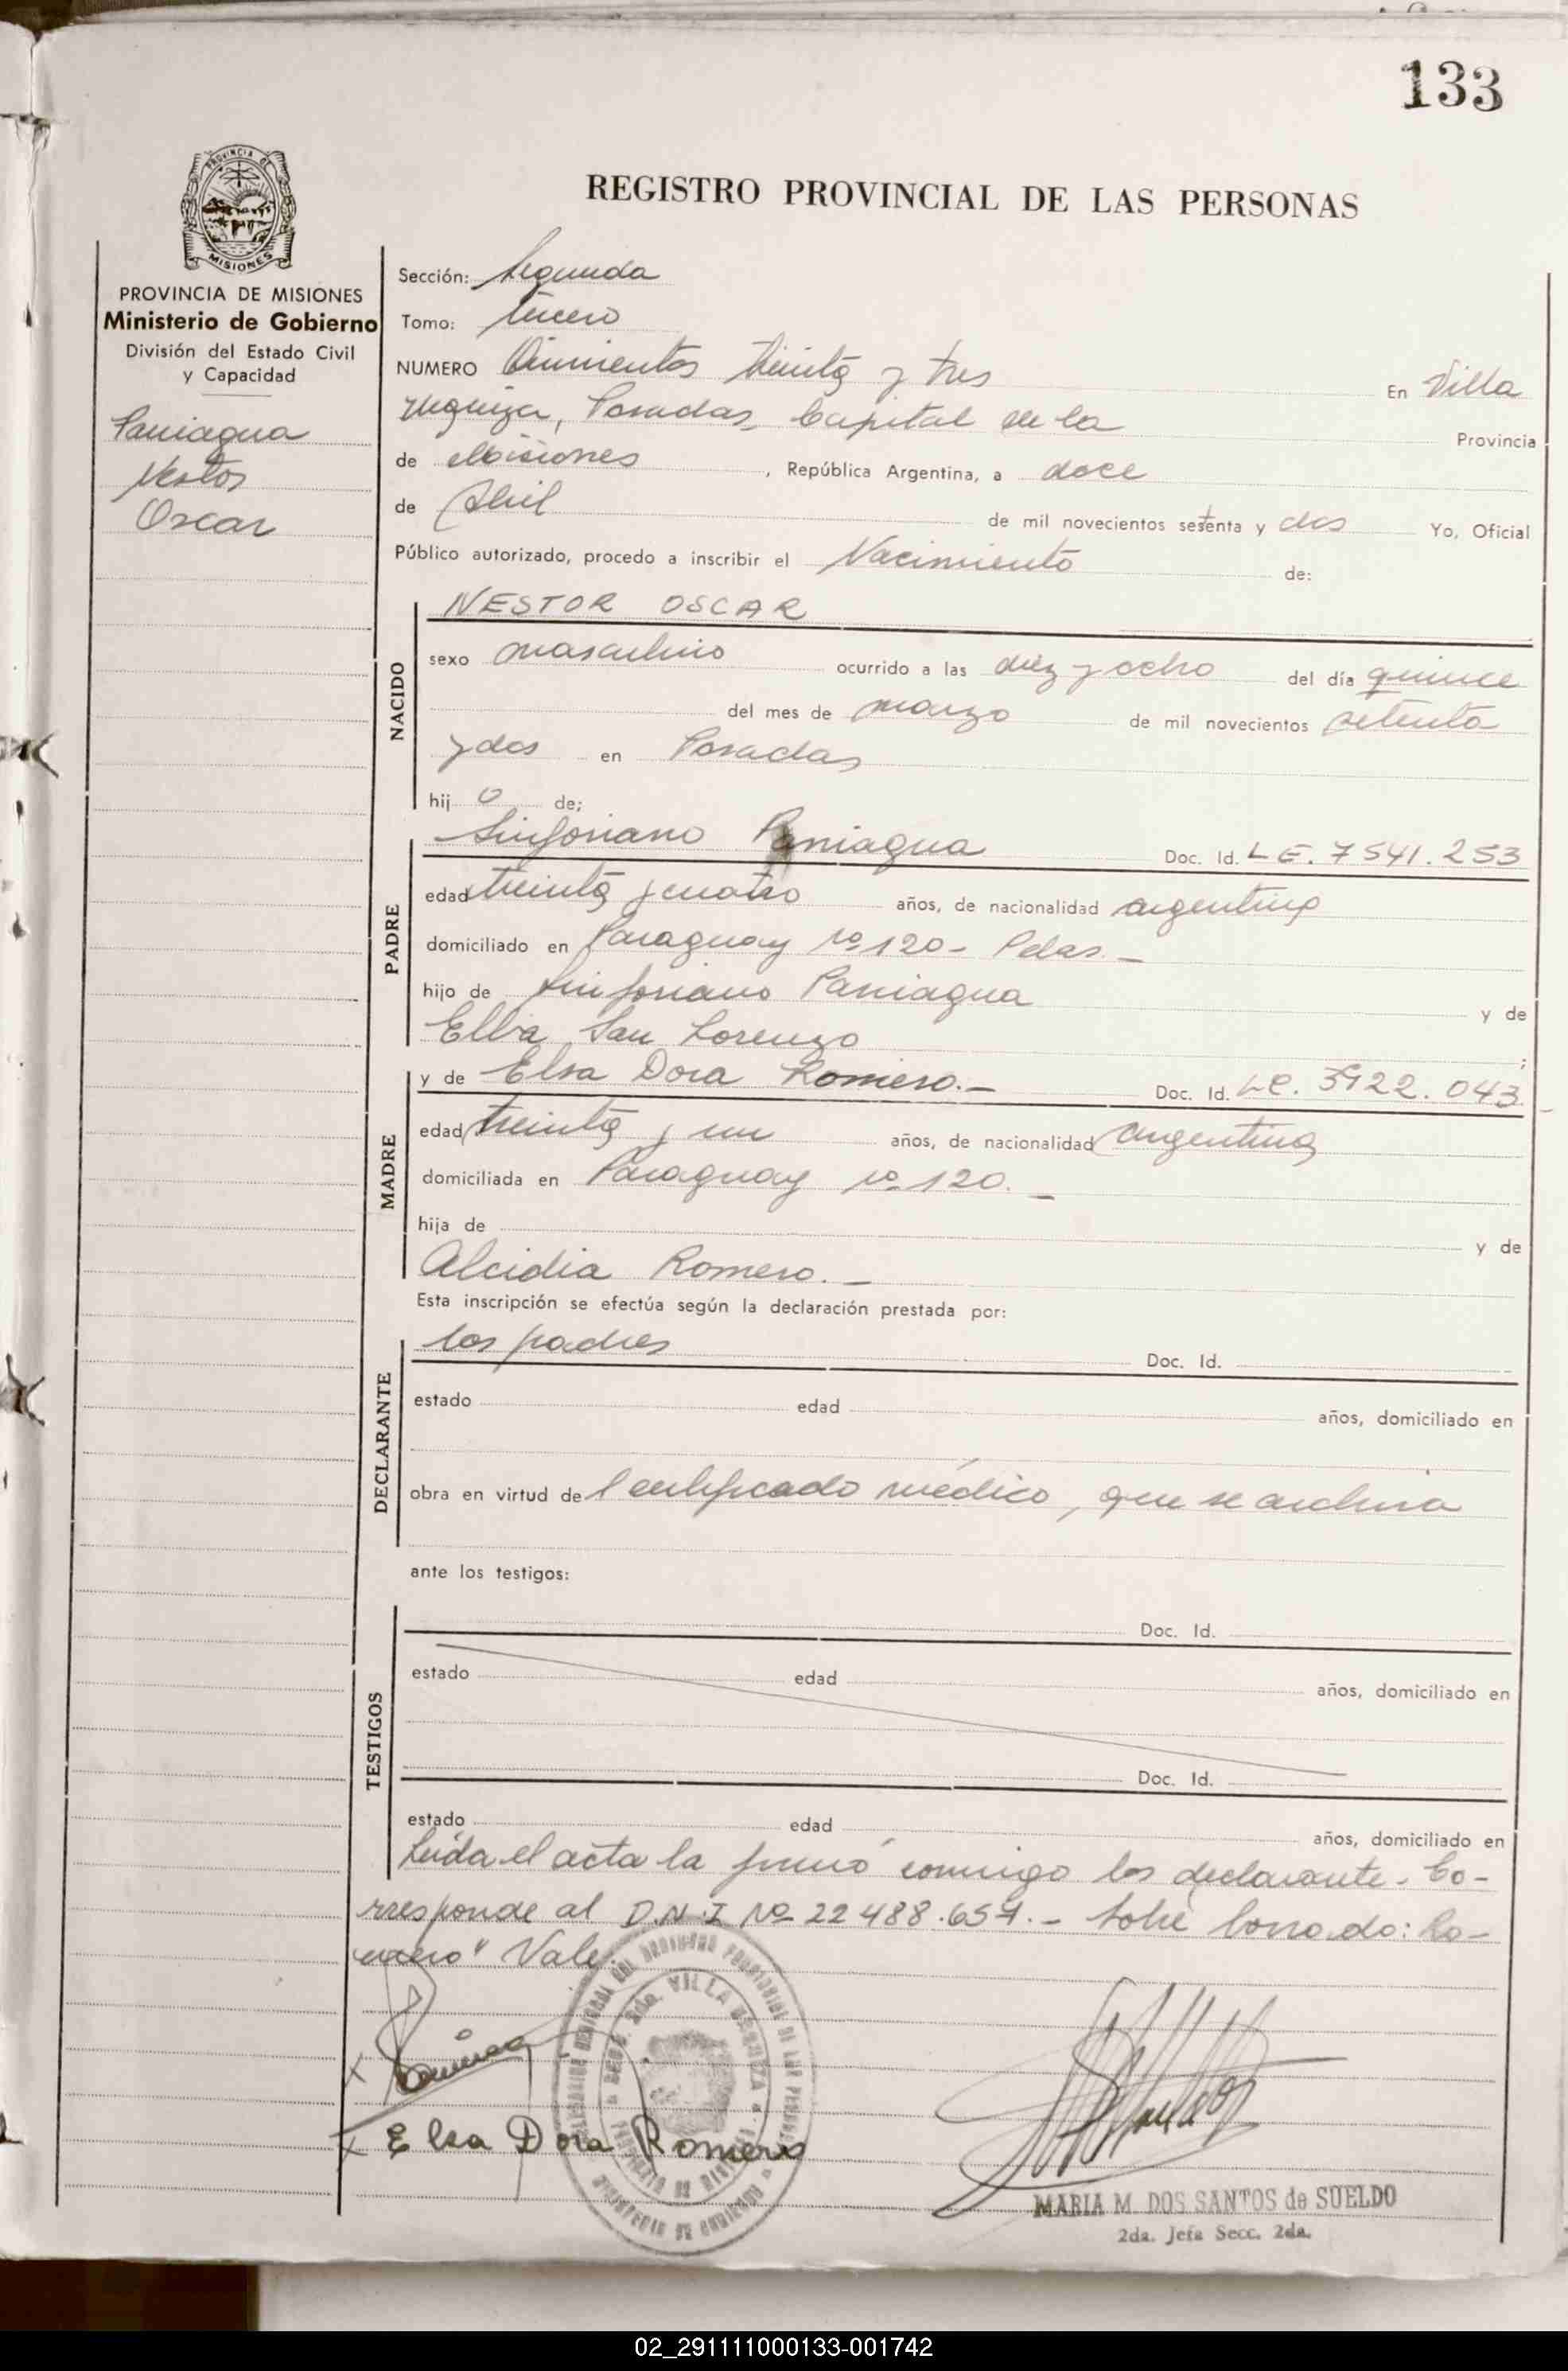 133
PROVINCIA DE MISIONES
REGISTRO PROVINCIAL DE LAS PERSONAS
PROVINCIA DE MISIONES
Ministerio de Gobierno
División del Estado Civil
y Capacidad
Paniagua
Nestor
Oscar
Sección: Segunda
Tomo: tercero
NUMERO Quinientos treinta y tres En Villa
Urquiza, Posadas, Capital de la Provincia
de Misiones, República Argentina, a doce
de Abril de mil novecientos setenta y dos Yo, Oficial
Público autorizado, procedo a inscribir el Nacimiento de:
NACIDO
NESTOR OSCAR
sexo masculino ocurrido a las diez y ocho del día quince
del mes de marzo de mil novecientos setenta
y dos en Posadas
hij o de;
PADRE
Sinforiano Paniagua Doc. Id. LE. 7541.253
edad treinta y cuatro años, de nacionalidad argentino
domiciliado en Paraguay nº 120 - Pdas. -
hijo de Sinforiano Paniagua y de
Elba San Lorenzo ;
MADRE
y de Elsa Dora Romero.- Doc. Id. LC. 3922.043
edad treinta y un años, de nacionalidad argentina
domiciliada en Paraguay nº 120. -
hija de y de
Alcidia Romero. -
Esta inscripción se efectúa según la declaración prestada por:
DECLARANTE
los padres Doc. Id.
estado edad años, domiciliado en
obra en virtud de l certificado médico, que se archiva
ante los testigos:
TESTIGOS
Doc. Id.
estado edad años, domiciliado en
Doc. Id.
estado edad años, domiciliado en
Leída el acta la firmó conmigo los declarante. Co-
rresponde al D.N.I Nº 22488.657. - Sobre borrado: Ro-
mero" Vale.
VILLA URQUIZA
x Paniagua
x Elsa Dora Romero
MARIA M. DOS SANTOS de SUELDO
2da. Jefa Secc. 2da.
02_291111000133-001742